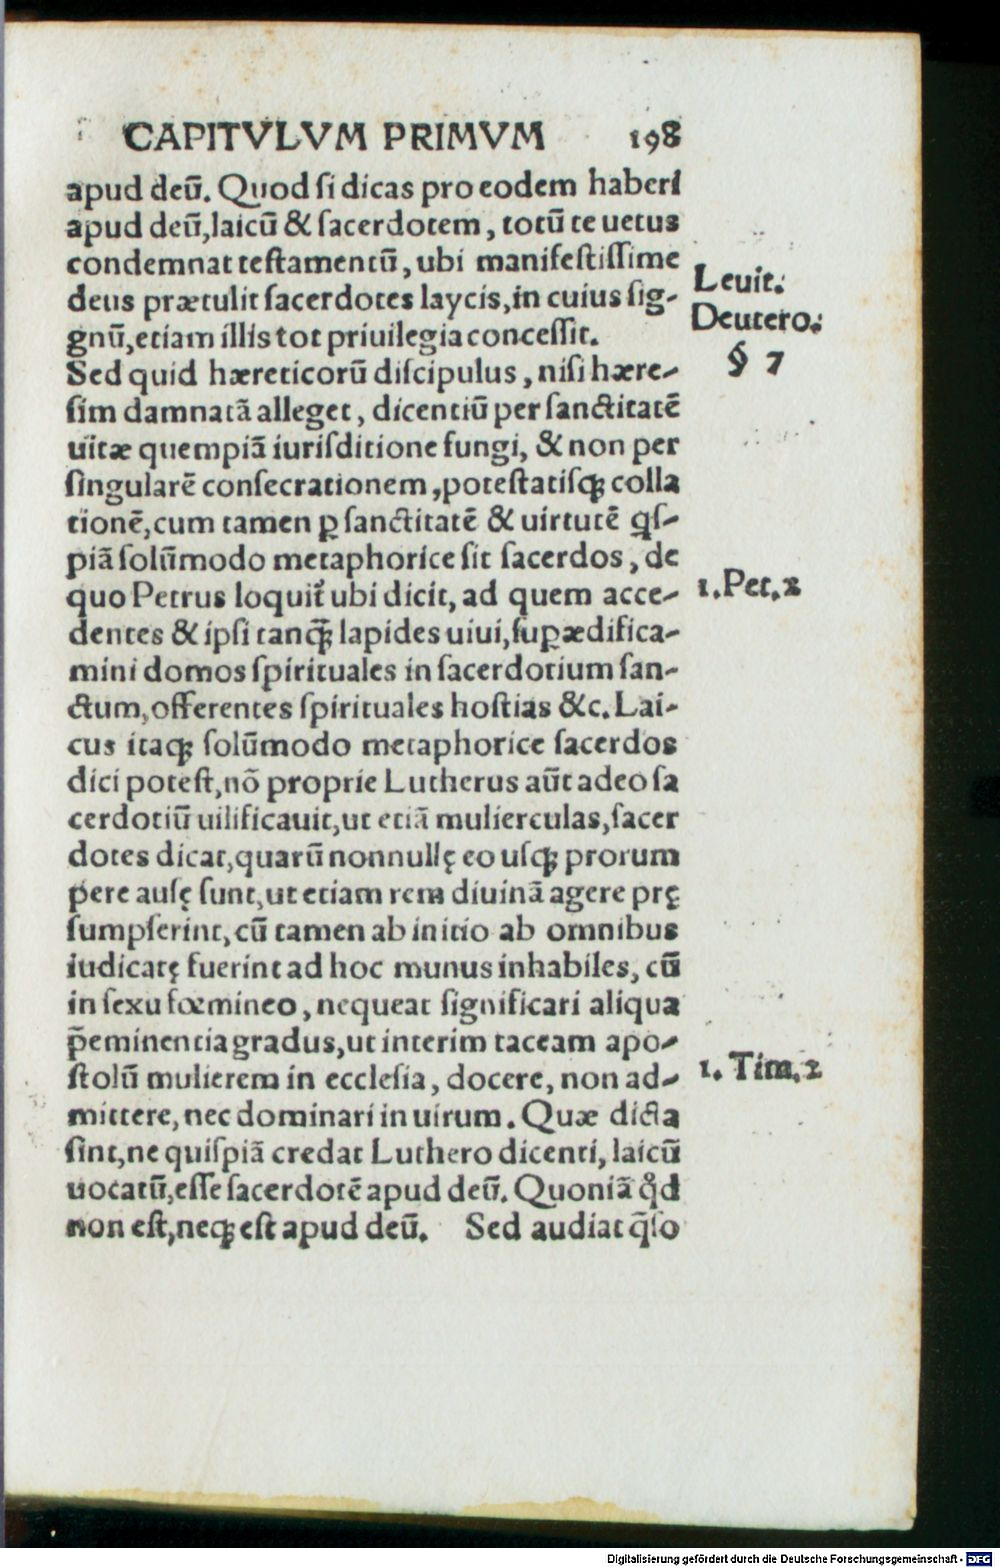 CAPITVLVM PRIMVM 198
apud deū. Quod ſi dicas pro eodem haberi
apud deū, laicū & ſacerdotem, totū te uetus
condemnat teſtamentū, ubi manifeſtiſſime
deus prætulit ſacerdotes laycis, in cuius ſig-
gnū, etiam illis tot priuilegia conceſſit.
Leuit.
Deutero.
§ 7
Sed quid hæreticorū diſcipulus, niſi hære-
ſim damnatā alleget, dicentiū per ſanctitatē
uitæ quempiā iuriſditione fungi, & non per
ſingularē conſecrationem, poteſtatiſq; colla
tionē, cum tamen ꝑ ſanctitatē & uirtutē qſ-
piā ſolūmodo metaphorice ſit ſacerdos, de
quo Petrus loquit᷑ ubi dicit, ad quem acce-
1. Pet. 2
dentes & ipſi tanq̃; lapides uiui, ſuꝑædifica-
mini domos ſpirituales in ſacerdotium ſan-
ctum, offerentes ſpirituales hoſtias &c. Lai-
cus itaq; ſolūmodo metaphorice ſacerdos
dici poteſt, nō proprie Lutherus aūt adeo ſa
cerdotiū uilificauit, ut etiā mulierculas, ſacer
dotes dicat, quarū nonnullę eo uſq; prorum
pere auſę ſunt, ut etiam rem diuinā agere prę
ſumpſerint, cū tamen ab initio ab omnibus
iudicatę fuerint ad hoc munus inhabiles, cū
in ſexu fœmineo, nequeat ſignificari aliqua
p̄eminentia gradus, ut interim taceam apo-
ſtolū mulierem in eccleſia, docere, non ad-
1. Tim. 2
mittere, nec dominari in uirum. Quæ dicta
ſint, ne quiſpiā credat Luthero dicenti, laicū
uocatū, eſſe ſacerdotē apud deū. Quoniā qd̓
non eſt, neq; eſt apud deū. Sed audiat q̄ſo
Digitalisierung gefördert durch die Deutsche Forschungsgemeinschaft - DFG